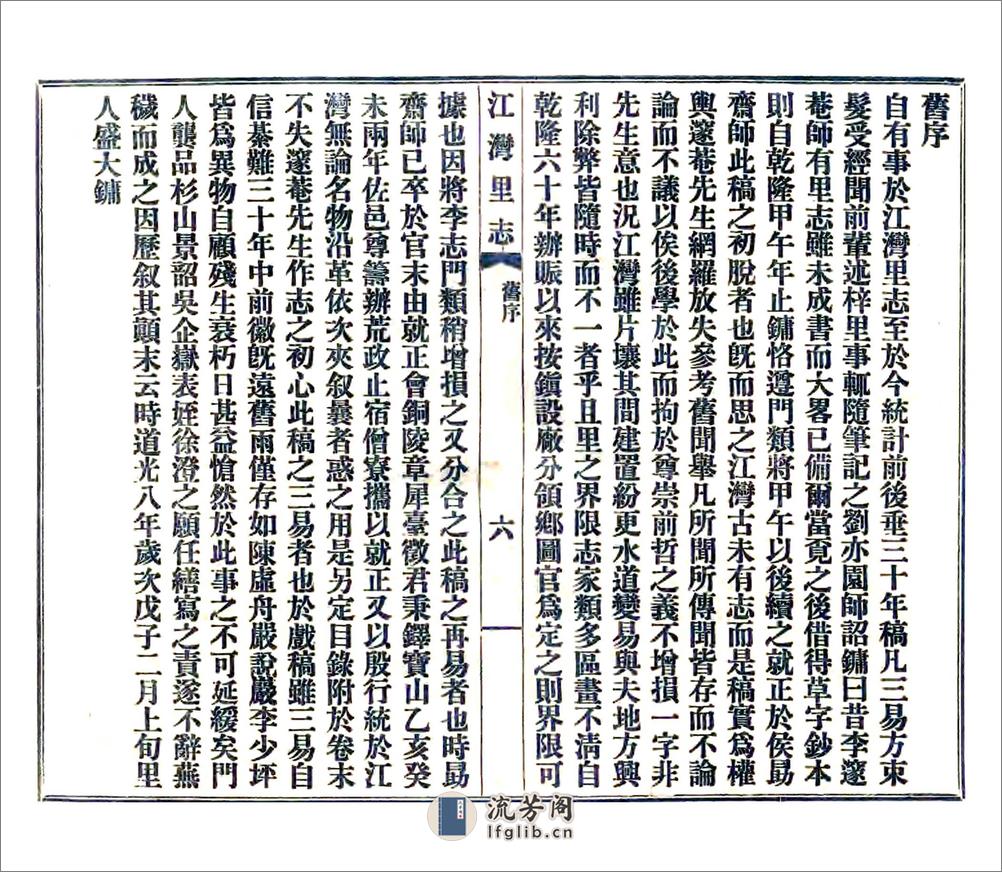 舊序
自有事於江灣里志至於今統計前後垂三十年稿凡三易方束
髮受經聞前輩述梓里事輒隨筆記之劉亦園師詔鏞曰昔李邃
菴師有里志雖未成書而大畧已備爾當覓之後借得草字鈔本
則自乾隆甲午年止鏞恪遵門類將甲午以後續之就正於侯勗
齋師此稿之初脫者也旣而思之江灣古未有志而是稿實爲權
輿邃菴先生網羅放失參考舊聞舉凡所聞所傳聞皆存而不論
論而不議以俟後學於此而拘於尊崇前哲之義不增損一字非
先生意也況江灣雖片壤其間建置紛更水道變易與夫地方興
利除弊皆隨時而不一者乎且里之界限志家類多區畫不淸自
乾隆六十年辦賑以來按鎭設廠分領鄉圖官爲定之則界限可
江灣里志
舊序
六
據也因將李志門類稍增損之又分合之此稿之再易者也時勗
齋師已卒於官末由就正會銅陵章犀臺徵君秉鐸寶山乙亥癸
未兩年佐邑尊籌辦荒政止宿僧寮攜以就正又以殷行統於江
灣無論名物沿革依次夾叙曩者惑之用是另定目錄附於卷末
不失邃菴先生作志之初心此稿之三易者也於戲稿雖三易自
信綦難三十年中前徽旣遠舊雨僅存如陳虛舟嚴說巖李少坪
皆爲異物自顧殘生衰朽日甚益愴然於此事之不可延緩矣門
人龔品杉山景韶吳企嶽表姪徐澄之願任繕寫之責遂不辭蕪
穢而成之因歷叙其顚末云時道光八年歲次戊子二月上旬里
人盛大鏞
流芳阁
lfglib.cn